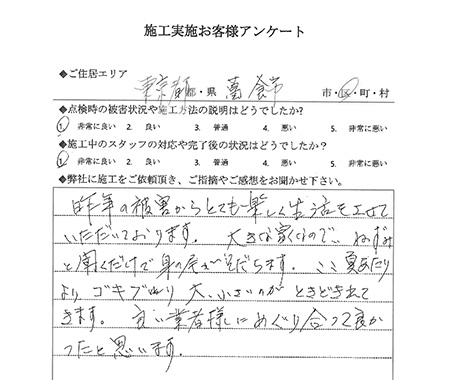 施工実施お客様アンケート
◆ご住居エリア
東京都 都・県 葛飾市 市・区・町・村
◆点検時の被害状況や施工方法の説明はどうでしたか?
1. 非常に良い 2. 良い 3. 普通 4. 悪い 5. 非常に悪い
◆施工中のスタッフの対応や完了後の状況はどうでしたか?
1. 非常に良い 2. 良い 3. 普通 4. 悪い 5. 非常に悪い
◆弊社に施工をご依頼頂き、ご指摘やご感想をお聞かせ下さい。
昨年の被害からとても楽しく生活をさせて
いただいております。大きな家なので、ねずみ
と聞くだけで身の毛がそだちます。ここ夏あたり
より ゴキブリ 大、小さいのが ときどきでて
きます。良い業者様にめぐり合って良か
ったと思います。